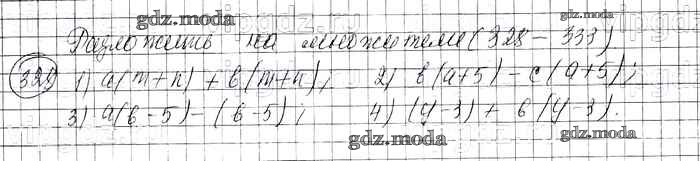 gdz.moda
Разложить на множители (328 – 333)
329 1) a(m+n) + b(m+n); 2) b(a+5) – c(a+5);
3) a(b-5) – (b-5); 4) (y-3) + b(y-3).
gdz.moda
gdz.moda